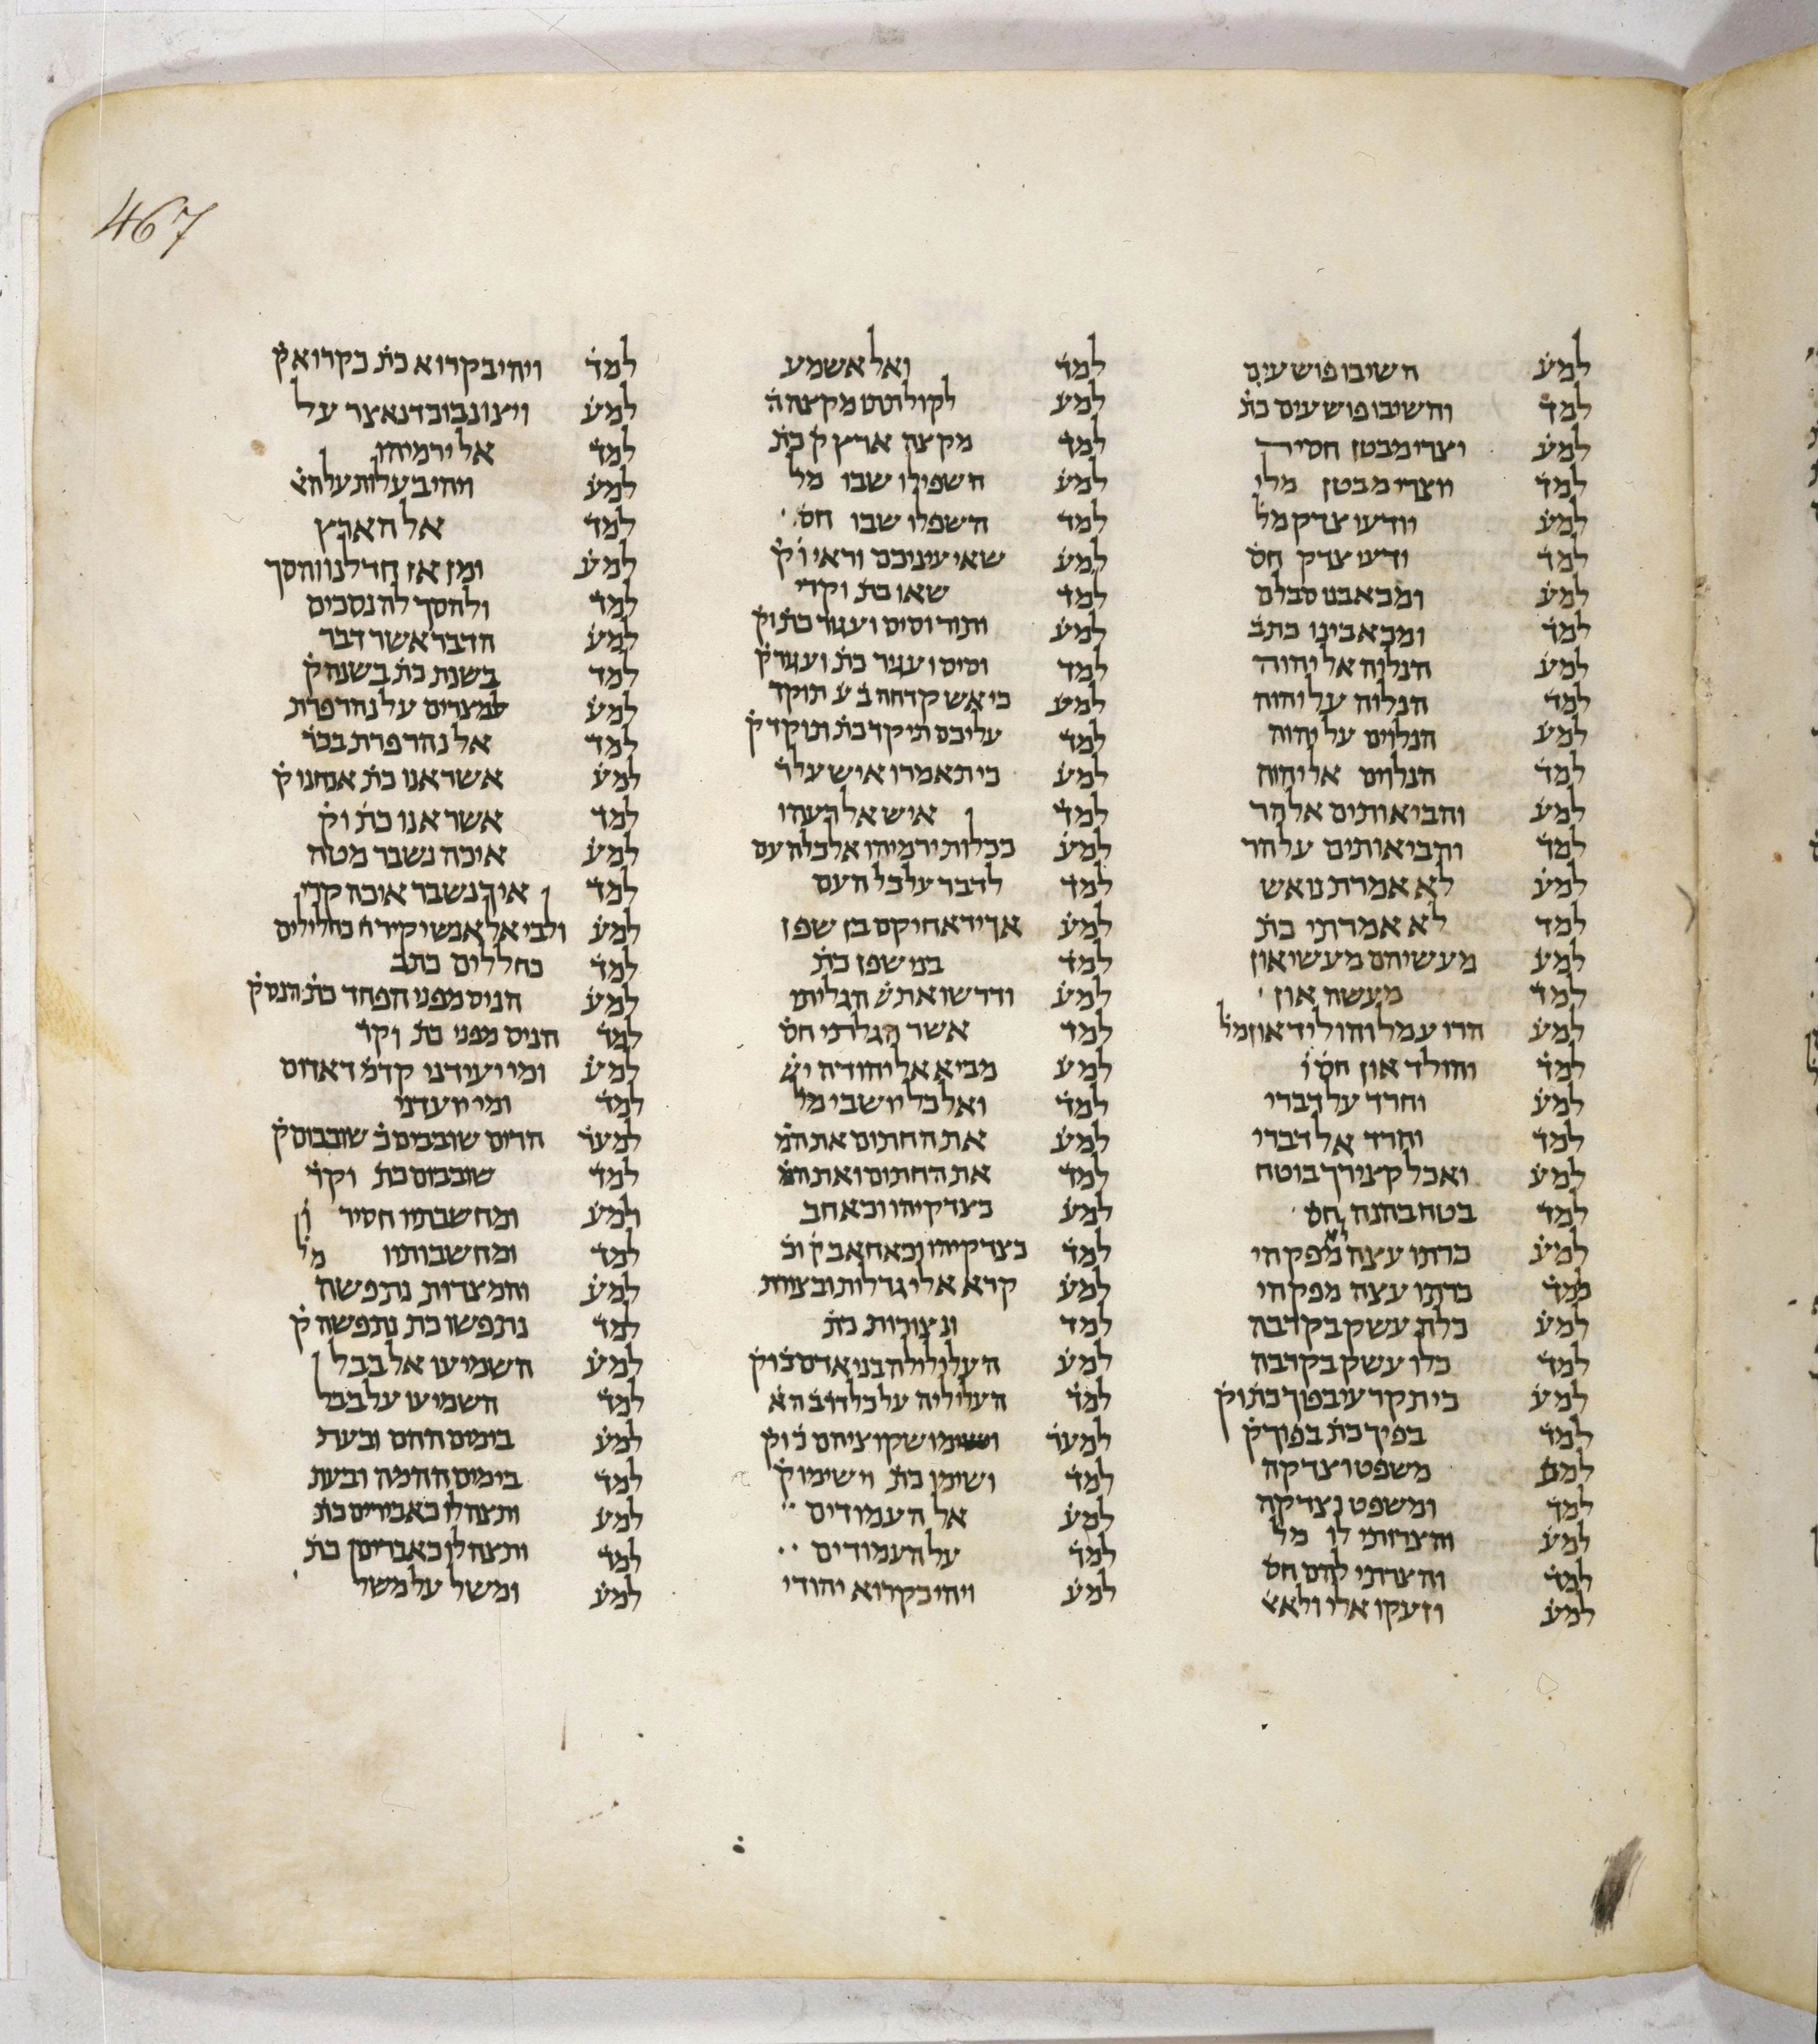 467
למע חשיבו פושעים
למד וחשיבו פושעים כת
למע וצרי מבטן חסיר
למד ויוצרי מבטן מלי
למע יודעי צדק מל
למד ידעי צדק חס
למע ומכאבנו סבלם
למד ומכאבינו כתב
למע הנלוה אל יהוה
למד הנלוה על יהוה
למע הנלוים על יהוה
למד הנלוים אל יהוה
למע והביאותים אל הר
למד והביאותים על הר
למע לא אמרת נואש
למד לא אמרתי כת
למע מעשיהם מעשי און
למד מעשה און
למע הרו עמל והוליד און מל
למד והולד און חס
למע וחרד על דברי
למד וחרד אל דברי
למע ואכל קצירך בוטח
למד בטח בהנה חס
למע ברתו עצה מפקחי
למד ברתו עצה מפקחי
למע כלת עשק בקרבה
למד כלו עשק בקרבה
למע כי תקרעי בפוך כת וק
למד בפיך כת בפוך ק
למע משפט וצדקה
למד ומשפט וצדקה
למע והצרותי לו מל
למד והצרתי להם חס
למע וזעקו אלי ולא
למד ואל אשמע
למע לקול תתו מקצה ה
למד מקצה ארץ ק כת
למע השפילו שבו מל
למד השפלו שבו חס
למע שאי עיניכם וראי וק
למד שאו כת וקרי
למע ותור וסיס ועגור כת וק
למד וסיס ועגור כת ועגור ק
למע כי אש קדחה בע תוקד
למד עליכם תיקד כת תוקד ק
למע כי תאמרו איש על ר
למד איש אל רעהו
למע ככלות ירמיהו אל כל העם
למד לדבר על כל העם
למע אך יד אחיקם בן שפן
למד בני שפן כת
למע ודרשו את ש הגליתי
למד אשר הגלתי חס
למע מביא אל יהודה יש
למד ואל כל יושבי מל
למע את החתום את המ
למד את החתום ואת המ
למע כצדקיהו וכאחב
למד כצדקיהו וכאחאב ק וכ
למע קרא אלי גדלות ובצורות
למד ונצורות כת
למע העלולולה בני אדם כ וק
למד העליליה על כל דרב הא
למער ושימו שקוציהם כ וק
למד ושימו כת וישימו ק
למע אל העמודים
למד על העמודים
למע ויהי כקרוא יהודי
למד ויהי בקרוא כת כקרוא ק
למע ויצו נבוכדנאצר על
למד אל ירמיהו
למע ויהי בעלות על הא
למד אל הארץ
למע ומן אז חדלנו והסך
למד ולהסך לה נסכים
למע הדבר אשר דבר
למד בשנת כת בשנה ק
למע למצרים על נהר פרת
למד אל נהר פרת בכר
למע אשר אנו כת אנחנו ק
למד אשר אנו כת וק
למע איכה נשבר מטה
למד איך נשבר איכה קרי
למע ולבי אל אנשי קיר ח כחלילים
למד כחללים כתב
למע הניס מפני הפחד כת הנס ק
למד הניס מפני כת וקר
למע ומי יועידני קדמ דאדום
למד ומי יועדני
למער הרים שובבים כ שובבום ק
למד שובבום כת וקר
למע ומחשבתיו חסיר ון
למד ומחשבותיו מל
למע והמצדות נתפשה
למד נתפשו כת נתפשה ק
למע השמיעו אל בבל
למד השמיעו על בבל
למע בימים ההם ובעת
למד בימים ההמה ובעת
למע ותצהלו כאבירים כת
למד ותצהלו כאברים כת
למע ומשל על משל